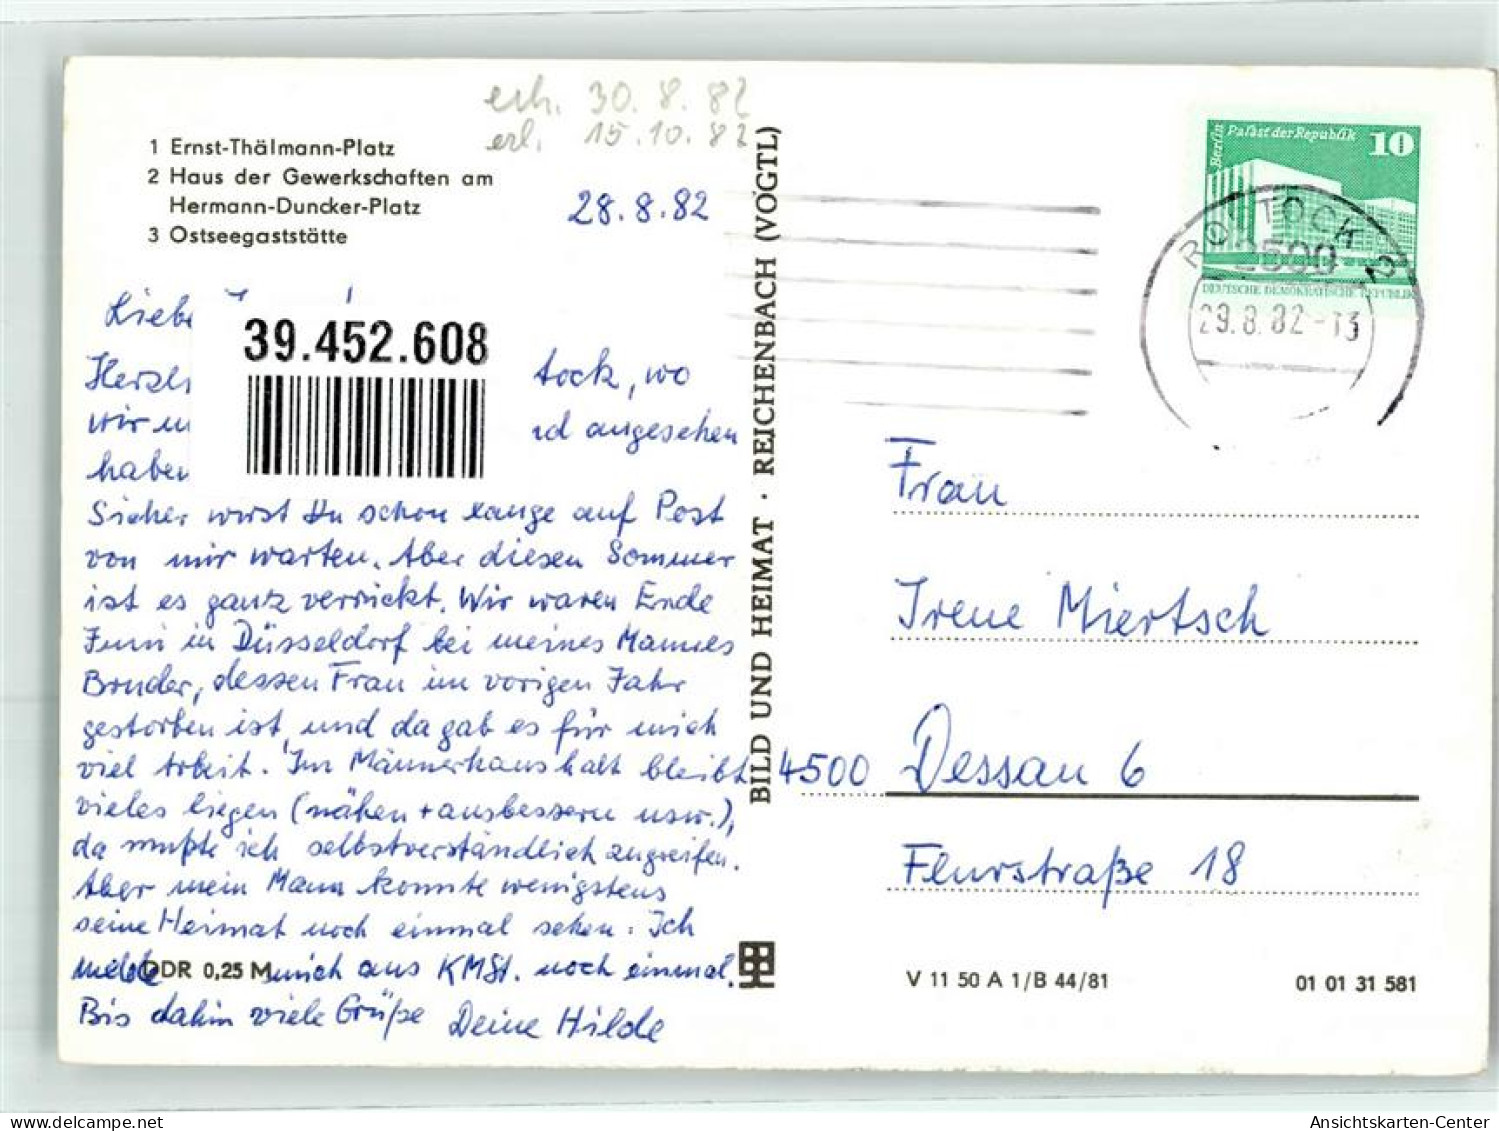 erh. 30.8.82
erl. 15.10.82
1 Ernst-Thälmann-Platz
2 Haus der Gewerkschaften am
Hermann-Duncker-Platz
3 Ostseegaststätte
28.8.82
Liebe
39.452.608
tock, wo
wir
angesehen
haben
Sicher wirst Du schon lange auf Post
von mir warten. Aber diesen Sommer
ist es ganz verrückt. Wir waren Ende
Juni in Düsseldorf bei meines Mannes
Bruder, dessen Frau im vorigen Jahr
gestorben ist, und da gab es für mich
viel Arbeit. Im Männerhaushalt bleibt
vieles liegen (nähen + ausbessern usw.),
da mußte ich selbstverständlich zugreifen.
Aber mein Mann konnte wenigstens
seine Heimat noch einmal sehen. Ich
melde mich aus KMSt. noch einmal.
DDR 0,25 M
Bis dahin viele Grüße Deine Hilde
BILD UND HEIMAT · REICHENBACH (VOGTL)
Berlin
Palast der Republik 10
DEUTSCHE DEMOKRATISCHE REPUBLIK
ROSTOCK 3
2500
29.8.82-13
Frau
Irene Miertsch
4500 Dessau 6
Flurstraße 18
V 11 50 A 1/B 44/81
01 01 31 581
oldthing.com
Ansichtskarten-Center